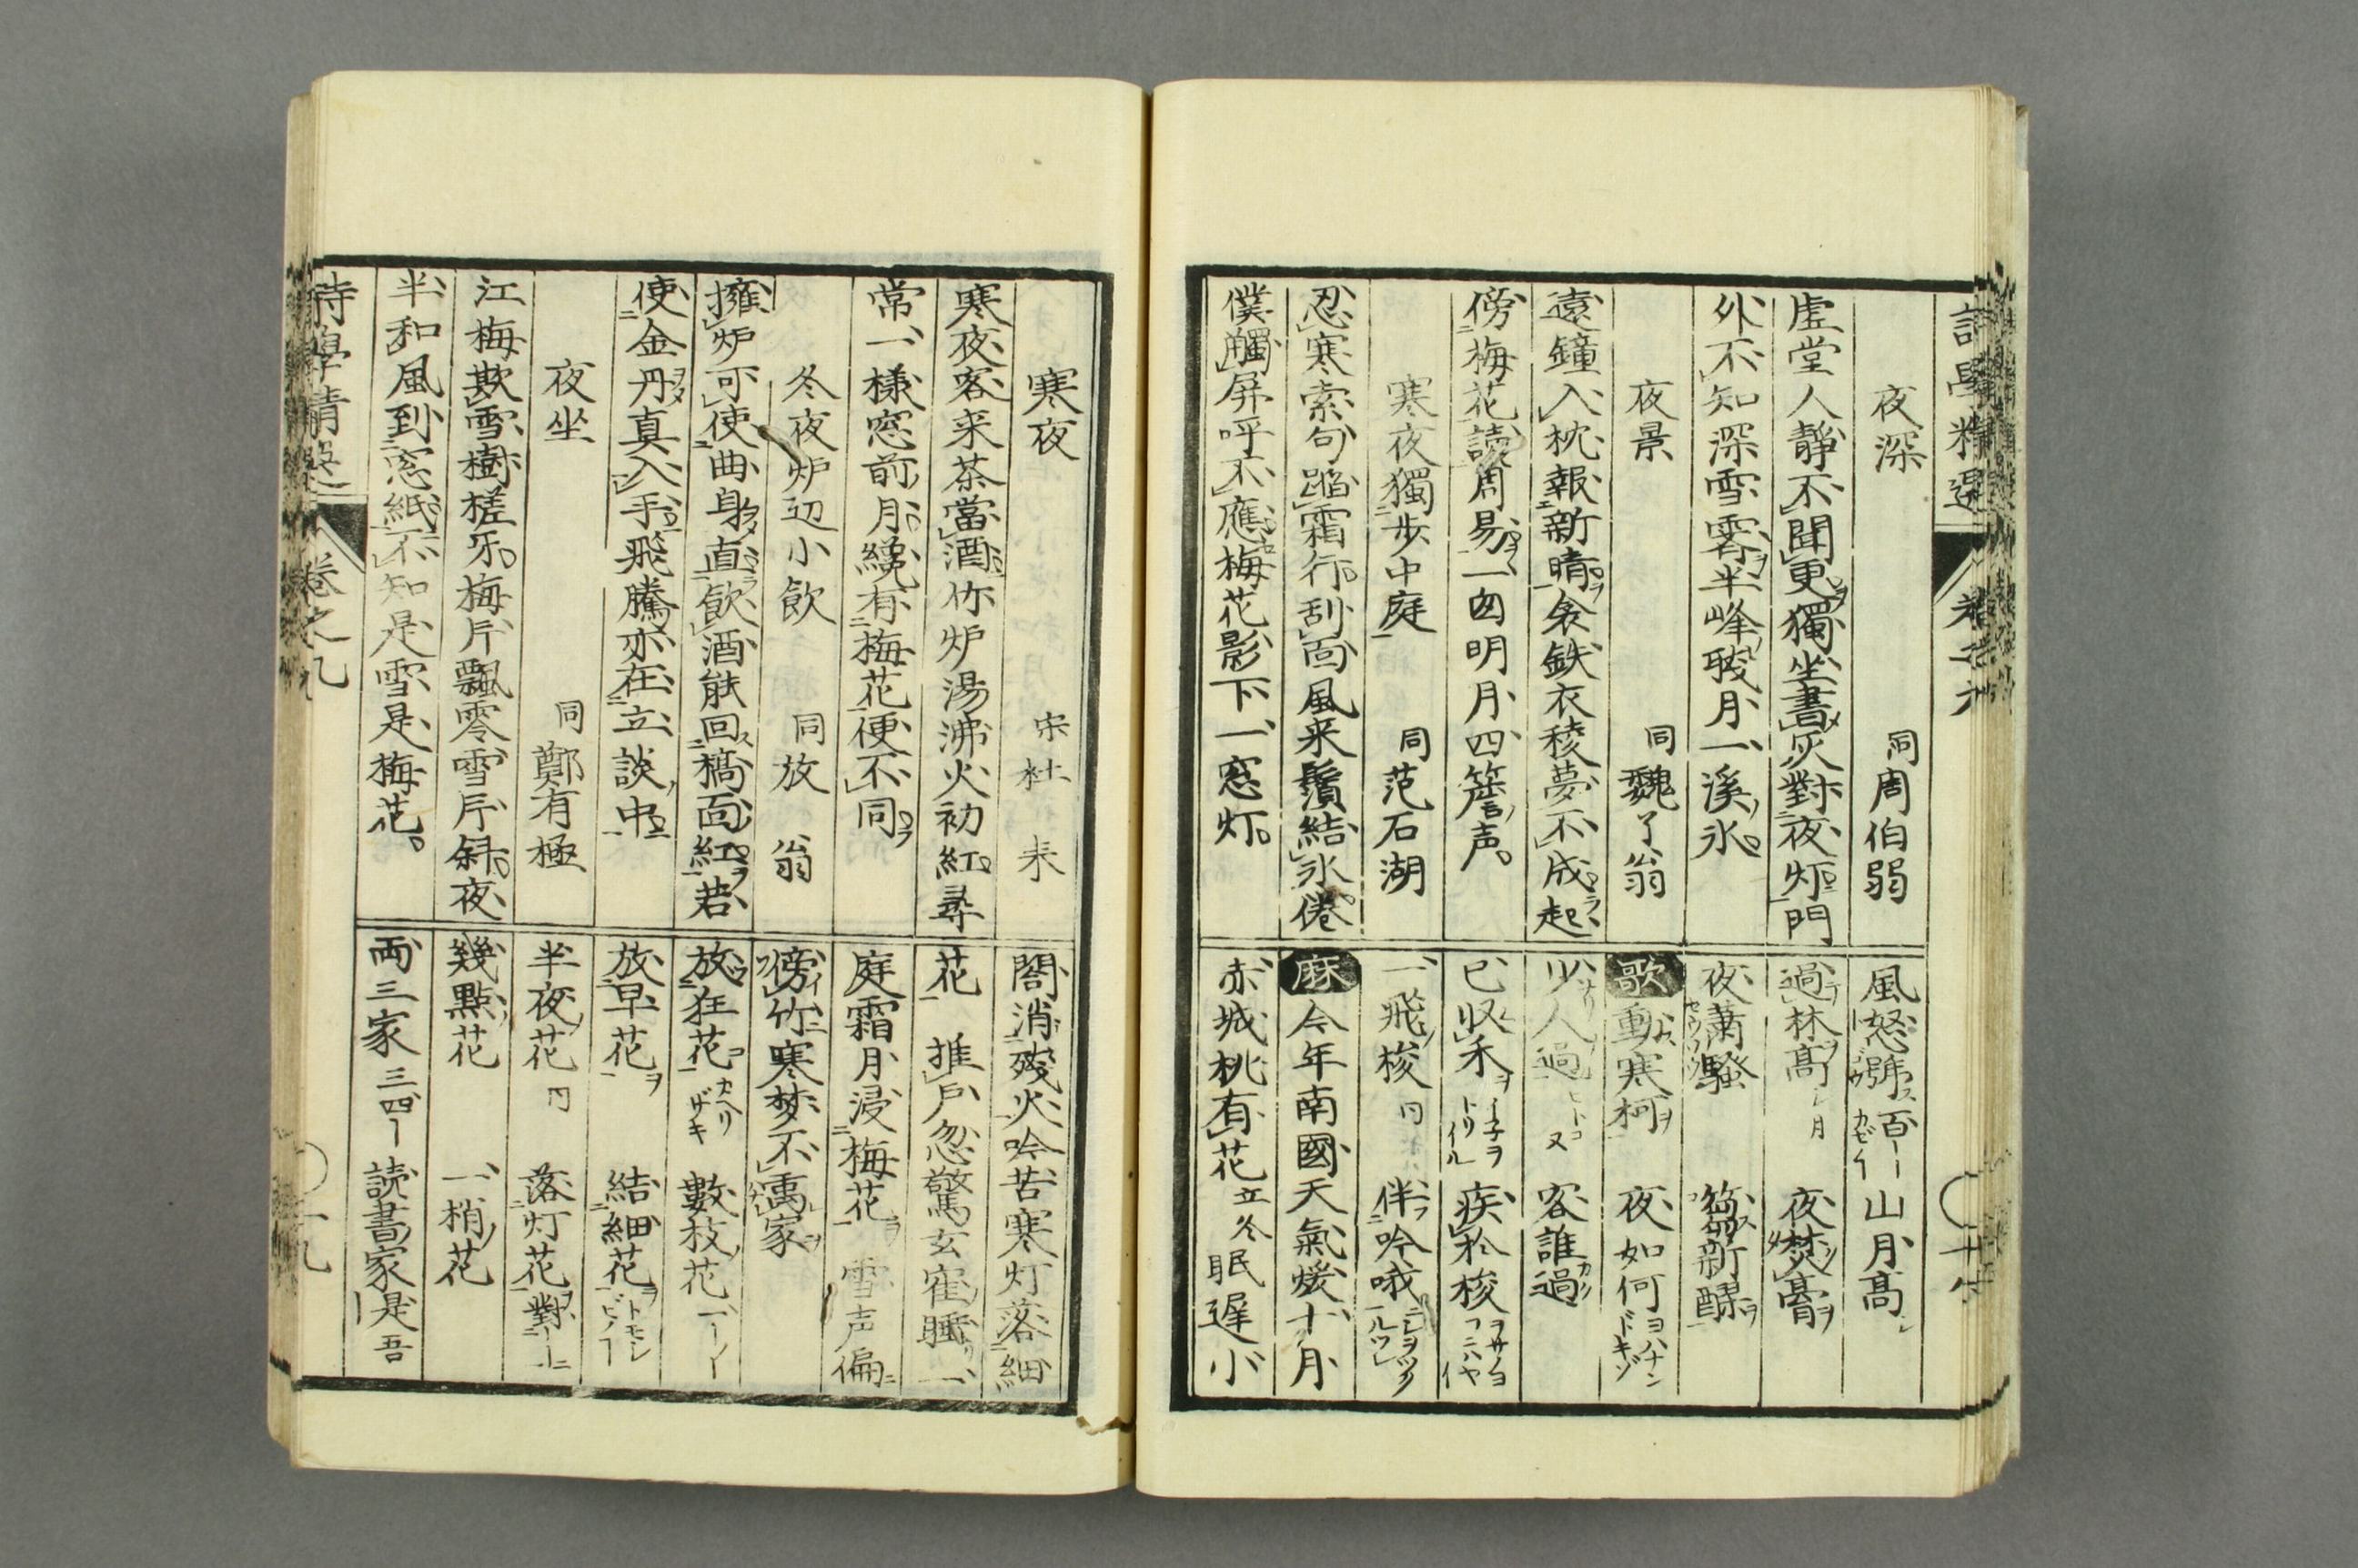 夜深　同周伯弱
虚堂人静不聞更獨坐書灰對夜灯門
外不知深雪霽半峰残月一溪氷
夜景　同魏了翁
遠鐘入枕報新晴衾鉄衣稜夢不成起
傍梅花読周易一囱明月四簷声
寒夜獨歩中庭　同范石湖
忍寒索句踏霜行刮面風来鬚結氷倦
僕觸屏呼不應梅花影下一窓灯
風怒號　山月髙
過林髙　夜焚膏
夜蕭騒　篘新醪
歌動寒柯　夜如何
少人過　客誰過
已収禾　疾於梭
一飛梭　伴吟哦
麻今年南國天氣煖十月
赤城桃有花立冬眠遅小
寒夜　宋杜耒
寒夜客来茶當酒竹炉湯沸火初紅尋
常一様窓前月纔有梅花便不同
冬夜炉辺小飲　同放翁
擁炉可使曲身直飲酒能回槁面紅若
使金丹真入手飛騰亦在立談中
夜坐　同鄭有極
江梅欺雪樹槎牙梅片飄零雪片斜夜
半和風到窓紙不知是雪是梅花
閤消殘火吟苦寒灯落細
花　推戸忽驚玄寉睡一
庭霜月浸梅花　雪声偏
傍竹寒梦不离家
放狂花　數枝花
放早花　結細花
半夜花　落灯花
幾點花　一梢花
両三家　読書家是吾
詩學精選　卷之九